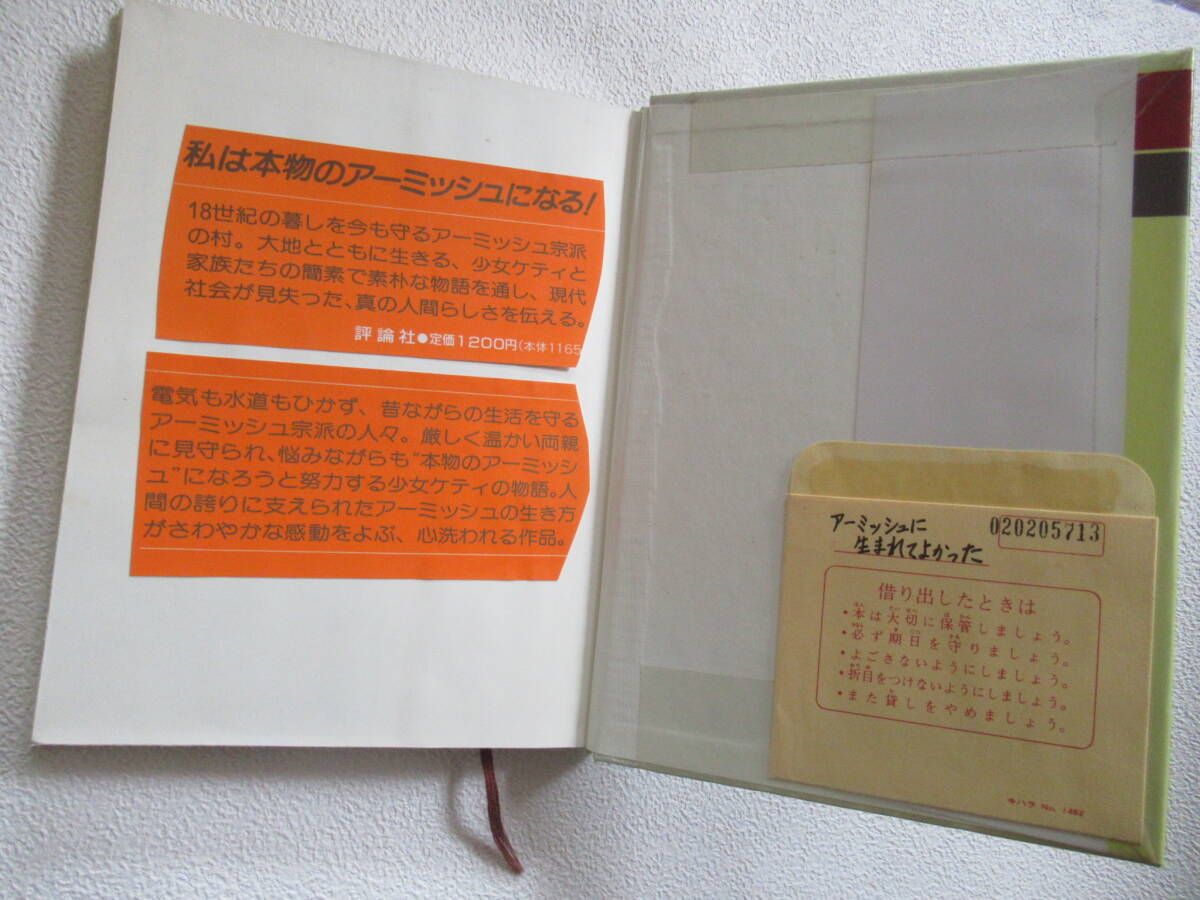 私は本物のアーミッシュになる!
18世紀の暮しを今も守るアーミッシュ宗派
の村。大地とともに生きる、少女ケティと
家族たちの簡素で素朴な物語を通し、現代
社会が見失った、真の人間らしさを伝える。
評論社●定価1200円(本体1165
電気も水道もひかず、昔ながらの生活を守る
アーミッシュ宗派の人々。厳しく温かい両親
に見守られ、悩みながらも“本物のアーミッシ
ュ”になろうと努力する少女ケティの物語。人
間の誇りに支えられたアーミッシュの生き方
がさわやかな感動をよぶ、心洗われる作品。
アーミッシュに
生まれてよかった
020205713
借り出したときは
・本は大切に保管しましょう。
・必ず期日を守りましょう。
・よごさないようにしましょう。
・折目をつけないようにしましょう。
・また貸しをやめましょう。
キハラ No. 1452